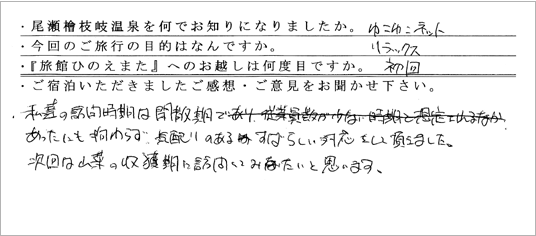 ・尾瀬檜枝岐温泉を何でお知りになりましたか。 ゆこゆこネット
・今回のご旅行の目的はなんですか。 リラックス
・『旅館ひのえまた』へのお越しは何度目ですか。 初回
・ご宿泊いただきましたご感想・ご意見をお聞かせ下さい。
私達の訪問時期は閑散期であり、従業員数が少ない時期と想定されるなか
あったにも拘わらず、気配りのあるすばらしい対応をして頂きました。
次回は山菜の収穫期に訪問してみたいと思います。